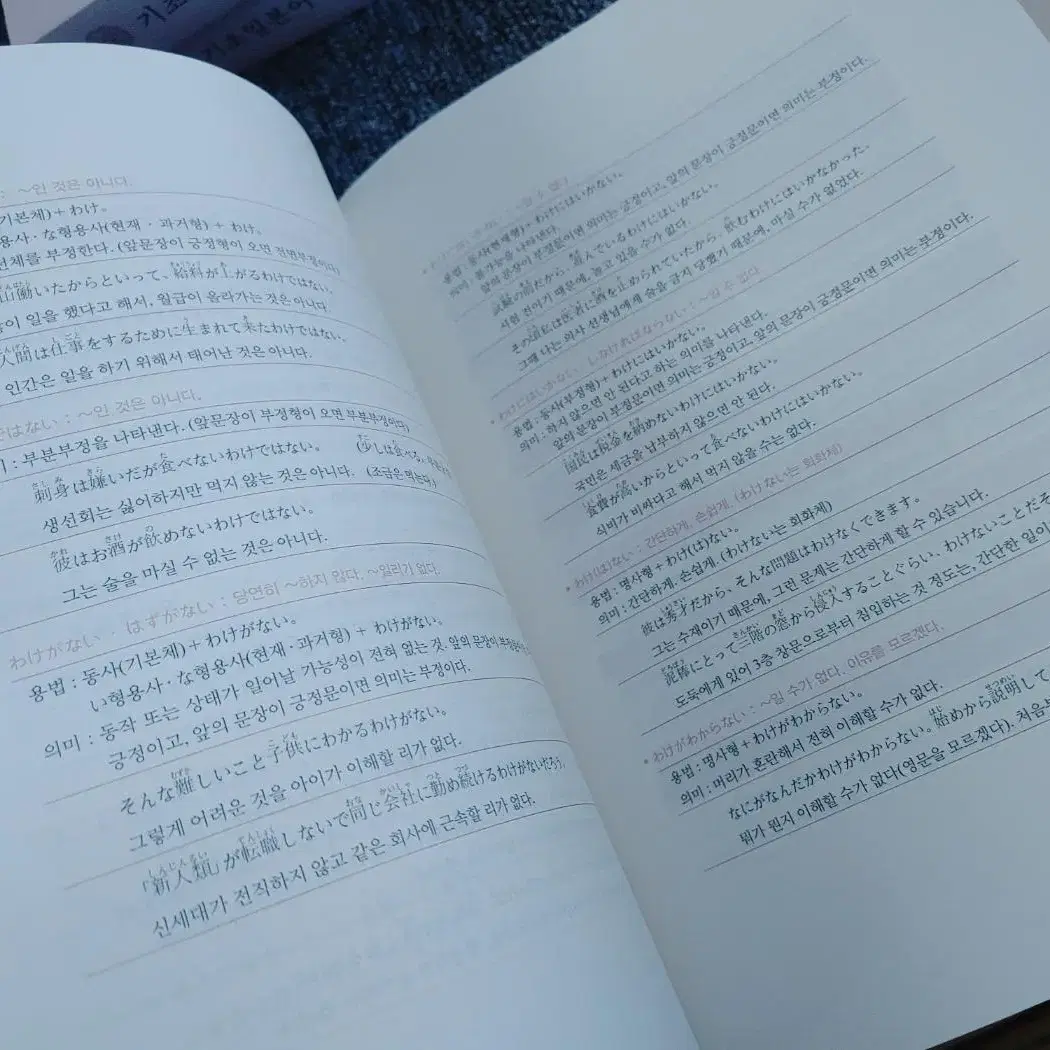 기초
기초일본어
: ~인 것은 아니다.
기본체) + わけ。
용사·な형용사(현재·과거형) + わけ.
전체를 부정한다. (앞문장이 긍정형이 오면 전면부정이다)
山働いたからといって、給料が上がるわけではない。
많이 일을 했다고 해서, 월급이 올라가는 것은 아니다.
人間は仕事をするために生まれて来たわけではない。
인간은 일을 하기 위해서 태어난 것은 아니다.
ではない : ~인 것은 아니다.
미 : 부분부정을 나타낸다. (앞문장이 부정형이 오면 부분부정이다)
刺身は嫌いだが食べないわけではない。 (少しは食べる。
생선회는 싫어하지만 먹지 않는 것은 아니다. (조금은 먹는다.)
彼はお酒が飲めないわけではない。
그는 술을 마실 수 없는 것은 아니다.
わけがない · はずがない : 당연히 ~하지 않다. ~일리가 없다.
용법 : 동사(기본체) + わけがない。
い형용사·な형용사(현재·과거형) + わけがない。
의미 : 동작 또는 상태가 일어날 가능성이 전혀 없는 것. 앞의 문장이 부정문이면
긍정이고, 앞의 문장이 긍정문이면 의미는 부정이다.
そんな難しいこと子供にわかるわけがない。
그렇게 어려운 것을 아이가 이해할 리가 없다.
「新人類」が転職しないで同じ会社に勤め続けるわけがないだろう。
신세대가 전직하지 않고 같은 회사에 근속할 리가 없다.
용법 : 동사(현재형) + わけにはいかない。
의미 : 불가능을 나타낸다.
앞의 문장이 부정문이면 의미는 긍정이고, 앞의 문장이 긍정문이면 의미는 부정이다.
試験の前だから、遊んでいるわけにはいかない。
시험 전이기 때문에, 놀고 있을 수가 없다.
その時私は医者に酒を止められていたから、飲むわけにはいかなかった。
그때 나는 의사 선생님에게 술을 금지 당했기 때문에, 마실 수가 없었다.
わけにはいかない しなければならない : ~일 수 없다.
용법 : 동사(부정형) + わけにはいかない。
의미 : 하지 않으면 안 된다고 하는 의미를 나타낸다.
앞의 문장이 부정문이면 의미는 긍정이고, 앞의 문장이 긍정문이면 의미는 부정이다.
国民は税金を納めないわけにはいかない。
국민은 세금을 납부하지 않으면 안 된다.
食費が高いからといって食べないわけにはいかない。
식비가 비싸다고 해서 먹지 않을 수는 없다.
わけ(は)ない : 간단하게, 손쉽게. (わけない는 회화체)
용법 : 명사형 + わけ(は)ない。
의미 : 간단하게, 손쉽게. (わけない는 회화체)
彼は秀才だから、そんな問題はわけなくできます。
그는 수재이기 때문에, 그런 문제는 간단하게 할 수 있습니다.
泥棒にとって三階の窓から侵入することぐらい、わけないことだそ
도둑에게 있어 3층 창문으로부터 침입하는 것 정도는, 간단한 일이
わけがわからない : ~일 수가 없다. 이유를 모르겠다.
용법 : 명사형 + わけがわからない。
의미 : 머리가 혼란해서 전혀 이해할 수가 없다.
なにがなんだかわけがわからない。始めから説明して
뭐가 뭔지 이해할 수가 없다(영문을 모르겠다). 처음부